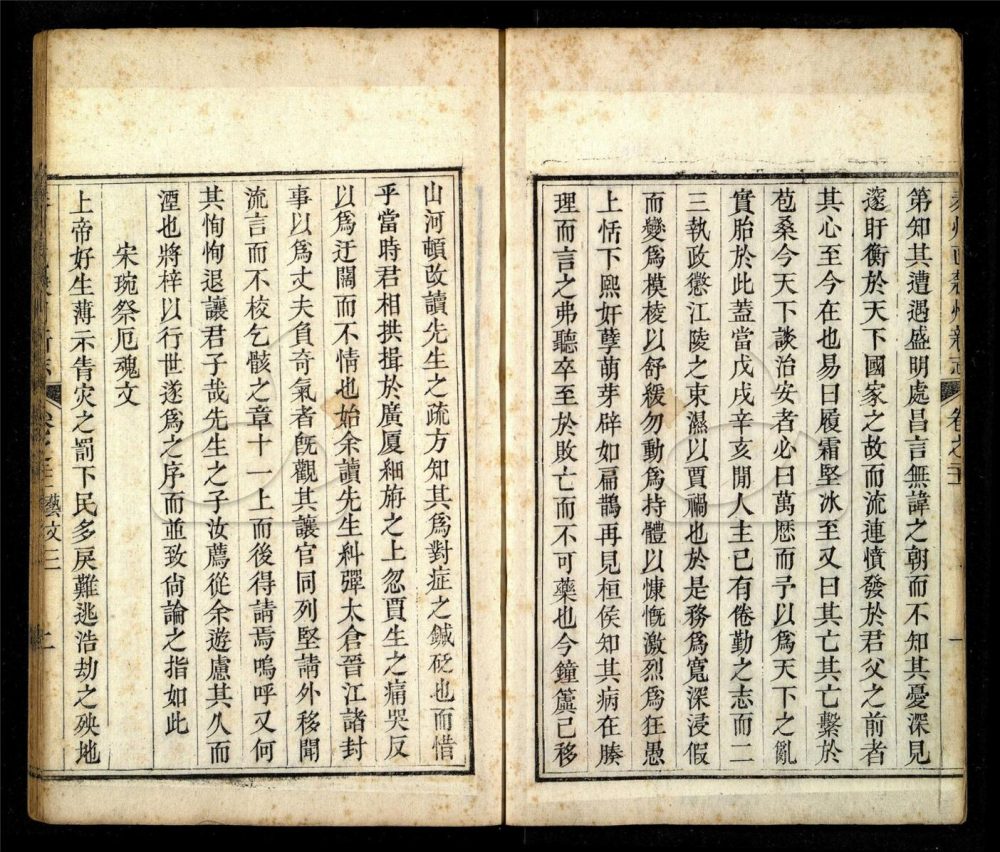 秦州直隸州新志 卷之二十
第知其遭遇盛明處昌言無諱之朝而不知其憂深見
邃盱衡於天下國家之故而流連憤發於君父之前者
其心至今在也易曰履霜堅冰至又曰其亡其亡繫於
苞桑今天下談治安者必曰萬厯而予以爲天下之亂
實胎於此蓋當戊戌辛亥閒人主已有倦勤之志而二
三執政懲江陵之束濕以賈禍也於是務爲寬深浸假
而變爲模棱以舒緩勿動爲持體以慷慨激烈爲狂愚
上恬下熙奸孽萌芽辟如扁鵲再見桓侯知其病在腠
理而言之弗聽卒至於敗亡而不可藥也今鐘簴已移
山河頓改讀先生之疏方知其爲對症之鍼砭也而惜
乎當時君相拱揖於廣厦細旃之上忽賈生之痛哭反
以爲迂闊而不情也始余讀先生糾彈太倉晉江諸封
事以爲丈夫負奇氣者旣觀其讓官同列堅請外移聞
流言而不校乞骸之章十一上而後得請焉嗚呼又何
其恂恂退讓君子哉先生之子汝薦從余遊慮其久而
湮也將梓以行世遂爲之序而並致尙論之指如此
宋琬祭厄魂文
上帝好生薄示眚灾之罰下民多戾難逃浩劫之殃地
藝文三